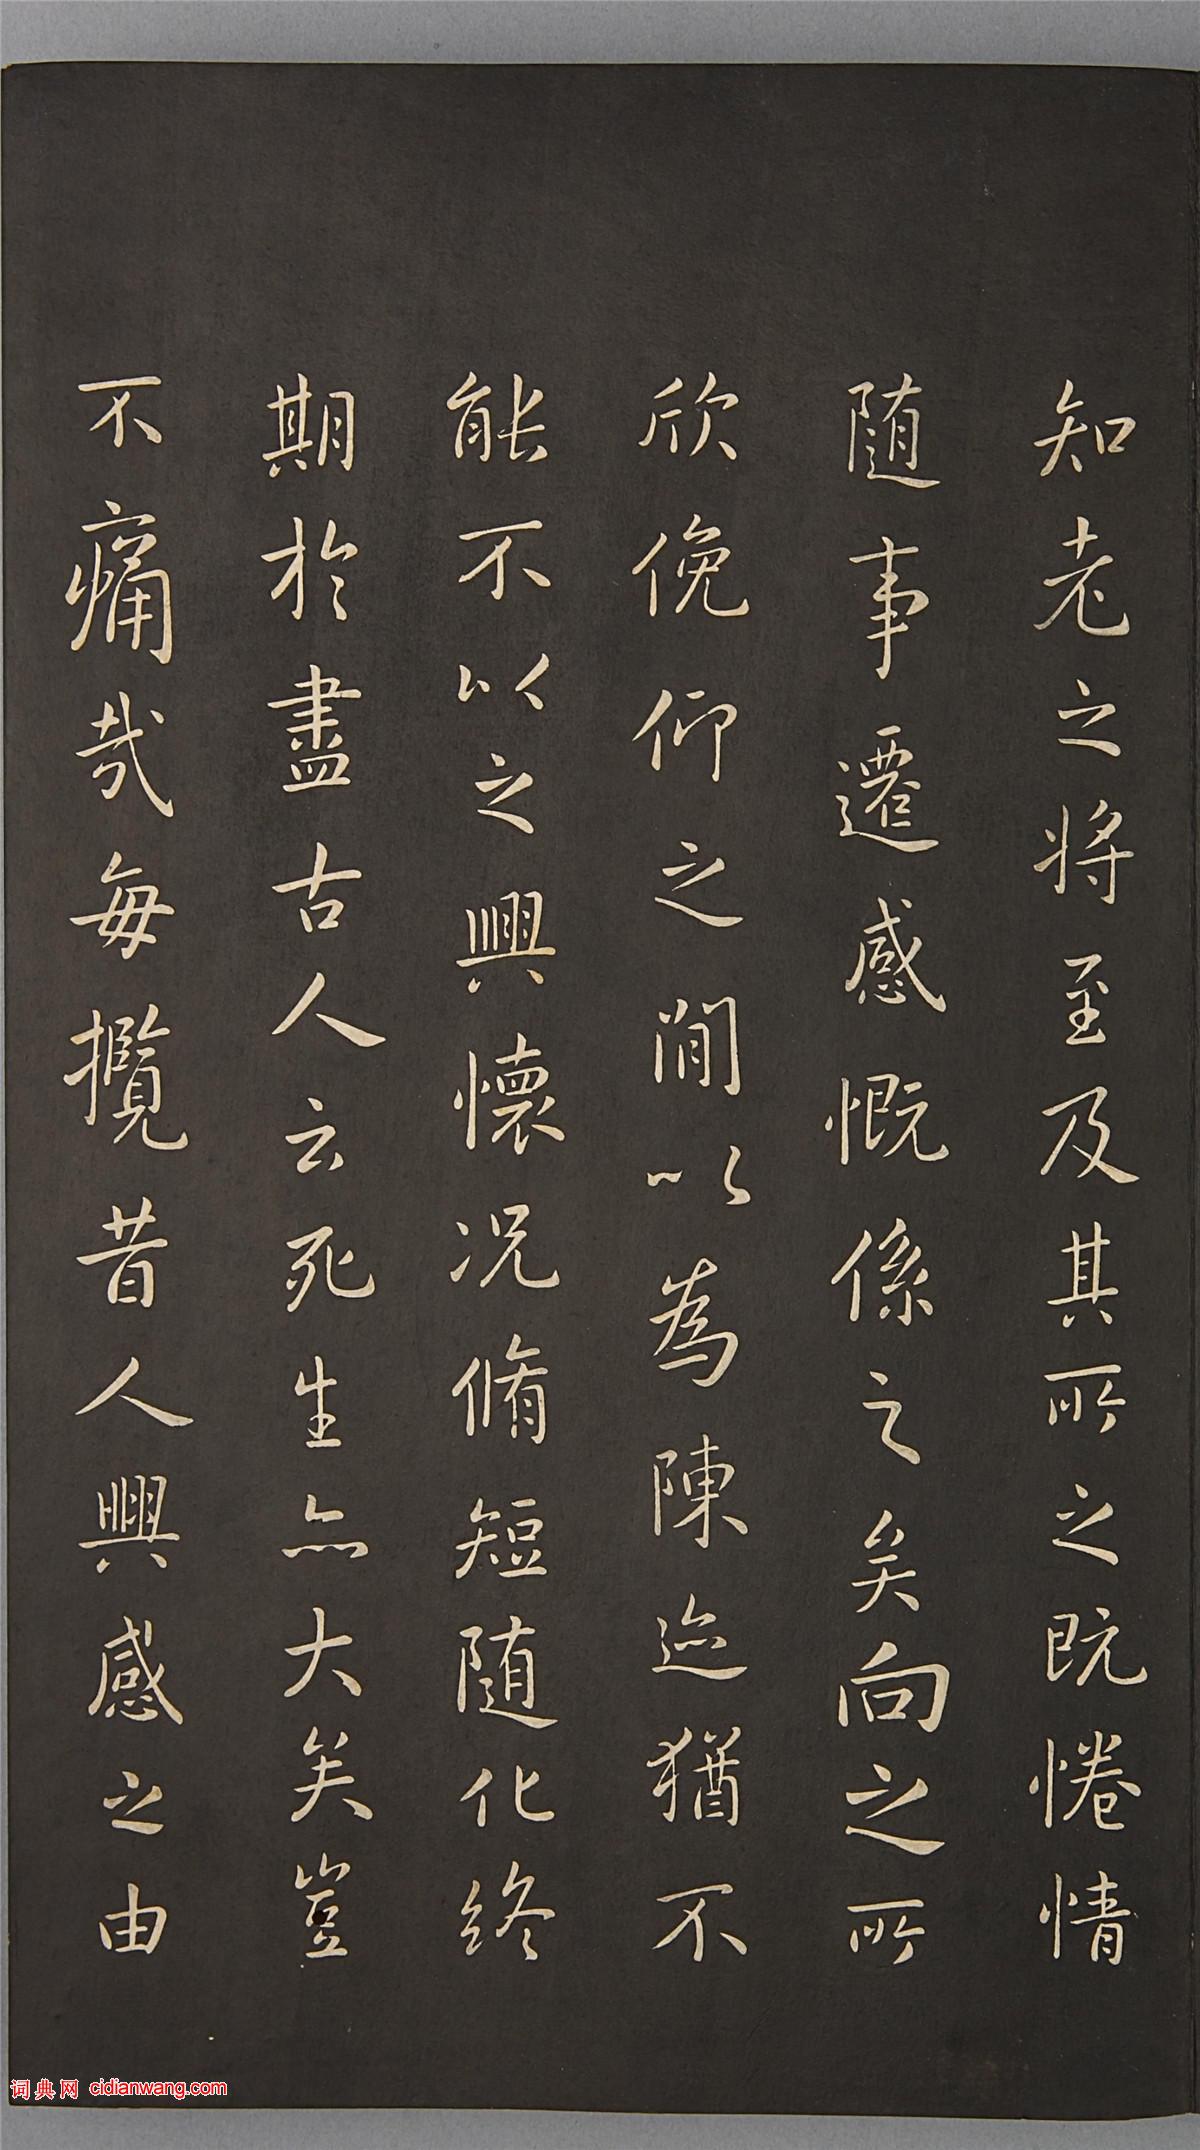 知老之将至及其所之既惓情
随事遷感慨係之矣向之所
欣俛仰之閒以為陳迹猶不
能不以之興懷况脩短随化終
期於盡古人云死生亦大矣豈
不痛哉每攬昔人興感之由
词典网 cidianwang.com